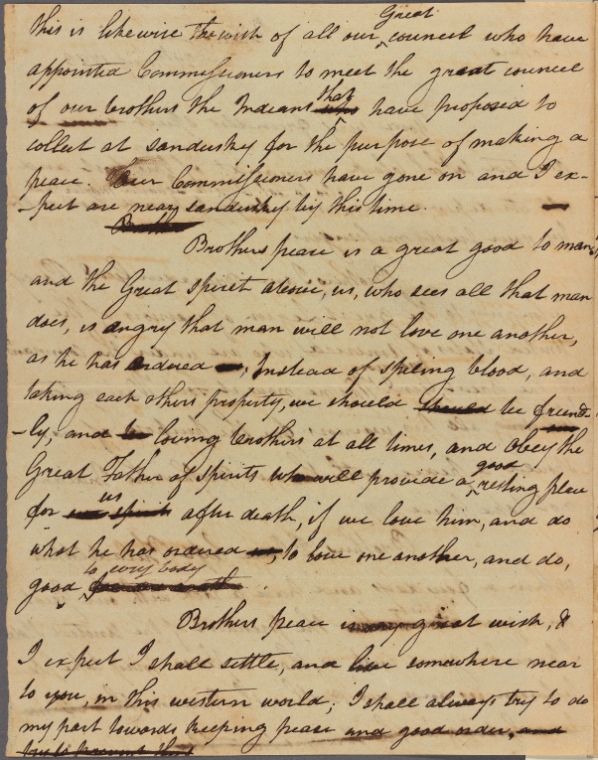 This is likewise the wish of all our Great council who have
appointed Commissioners to meet the great council
of our brothers the Indians that have proposed to
collect at Sandusky for the purpose of making a
peace. Our Commissioners have gone on and I ex-
-pect are near Sandusky by this time.
Brothers
Brothers peace is a great good to man,
and the Great Spirit above, us, who sees all that man
does, is angry that man will not love one another,
as he has ordered; Instead of spiling blood, and
taking each others property, we should should be friend-
-ly, and be loving brothers at all times, and obey the
Great Father of spirits who will provide a good resting place
for us spirits after death, if we love him, and do
what he has ordered us, to love one another, and do,
good to every body for one another
Brothers peace is my great wish, &
I expect I shall settle, and live somewhere near
to you, in this western world; I shall always try to do
my part towards keeping peace and good order, and
try to prevent that